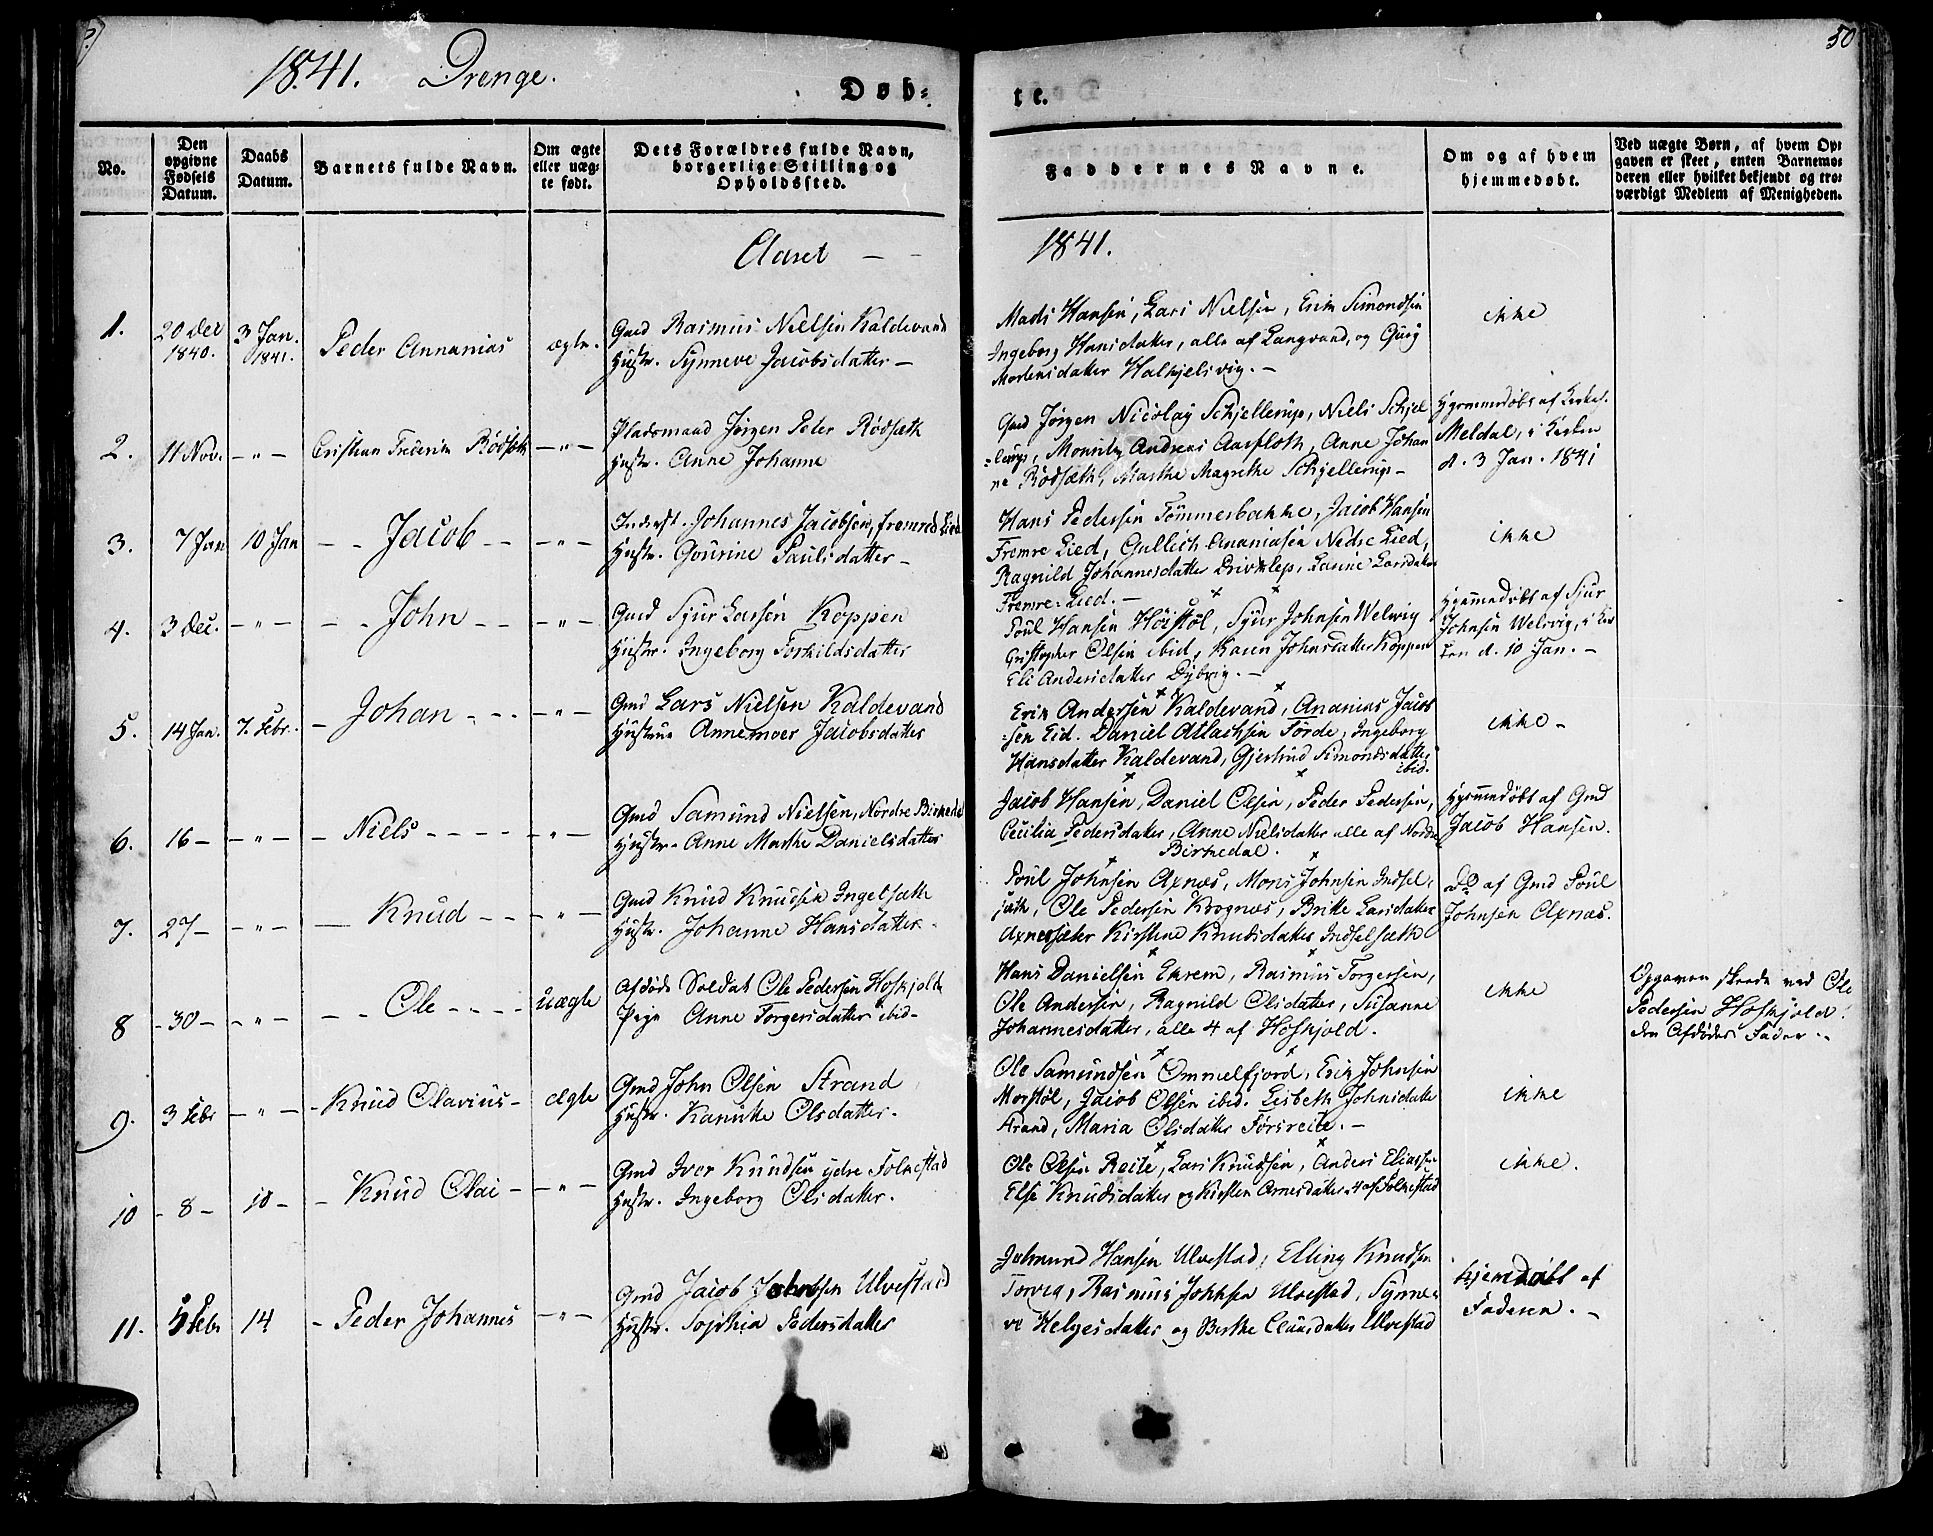 1841. Drenge.
Døb=
te.
50
No.
Den opgivne Fødsels Datum.
Daabs Datum.
Barnets fulde Navn.
Om ægte eller uæg- te født.
Dets Forældres fulde Navn, borgerlige Stilling og Opholdssted.
Faddernes Navne.
Om og af hvem hjemmedøbt.
Ved uægte Børn, af hvem Op- gaven er skeet, enten Barnemo- deren eller hvilket bekjendt og tro- værdigt Medlem af Menigheden.
Aaret — -
1841.
1.
20 Dec 1840.
3 Jan. 1841.
Peder Annanias
ægte.
Gmd Rasmus Nielsen Kaldevand
Hustr. Synneve Jacobsdatter —
Mads Hansen, Lars Nielsen, Erik Simondsen
Ingeborg Hansdatter, alle af Langvand, og Guri
Mortensdatter Halkjelsvig. —
ikke
2.
11 Nov.
— " —
Cristian Frederik Rödsæth
— " —
Pladsmand Jørgen Peter Rödsæth
Hustr. Anne Johanne
Gmd Jørgen Nicolay Schjellerup, Niels Schjel
=lerup, Andreas Aarfloth, Anne Johan
ne Rödsæth, Marthe Magrethe Schjellerup —
Hjemmedøbt af Kirkes.
Meldal, i Kirken
d. 3 Jan. 1841
3.
7 Jan
10 Jan
— - Jacob - -
— " —
Inderst. Johannes Jacobsen, fremred Lied
Hustr. Gourine Paulsdatter —
Hans Pedersen Tömmerbakke, Jacob Hansen
Fremre Lied, Gullich Ananiasen Nedre Lied,
Ragnild Johannesdatter Drivklep, Larsdatter
Fremre-Lied. —
ikke
4.
3 Dec.
— " —
— - John - -
— " —
Gmd Sjur Larsen Koppen
Hustr. Ingeborg Torkildsdatter
Poul Hansen Höistöl, Sjur Johnsen Welsvig
Cristopher Olsen ibid, Karen Johnsdatter Koppen
Eli Andersdatter Dybvig. —
Hjemmedøbt af Sjur
Johnsen Welsvig, i Kir
ken d. 10 Jan. —
5.
14 Jan.
7. Febr.
— Johan - - -
— " —
Gmd Lars Nielsen Kaldevand
Hustrue Annemoer Jacobsdatter
Erik Andersen Kaldevand, Ananias Jacob
=sen Eid. Daniel Atlachsen Förde, Ingeborg
Hansdatter Kaldevand, Gjertrud Simondsdatter
ibid.
ikke —
6.
16 —
— " —
— Niels - - - -
— " —
Gmd Samund Nielsen, Nordre Birkedal
Hustr. Anne Marthe Danielsdatter
Jacob Hansen, Daniel Olsen, Peder Pedersen,
Cecilia Pedersdatter, Anne Nielsdatter alle af Nordre
Birkedal.
Hjemmedøbt af Gmd
Jacob Hansen.
7.
27 —
— " —
— Knud - - -
— " —
Gmd Knud Knudsen Ingelsæth
Hustr. Johanne Hansdatter -
Poul Johnsen Axnæs, Mons Johnsen Indsel,
sæth, Ole Pedersen Krognæs, Britte Larsdatter
Kirstine Knudsdatter Indselsæth
do af Gmd Poul
Johnsen Axnæs.
8
- 30 —
- " —
— - Ole - - - -
uægte
Afdøde Soldat Ole Pedersen Hofkjold
Pige Anne Torgersdatter ibid-
Hans Danielsen Ekrem, Rasmus Torgersen,
Ole Andersen, Ragnild Olsdatter, Susanne
Johannesdatter, alle 4 af Hofkjold.
ikke
Opgaven skeede ved Ole
Pedersen Hofkjold.
den Afdødes Fader -
9.
3 Febr
— " —
- Knud Olavius —
ægte
Gmd John Olsen Strand
Hustr. Kanutte Olsdatter -
Ole Samundsen Ommelfjord, Erik Johnsen
Morstöl, Jacob Olsen ibid. Lisbeth Johnsdatter
Strand, Maria Olsdatter Förreite. —
ikke
10
- 8 —
10 —
- Knud Olai —
— " —
Gmd Iver Knudsen ydre Folkestad
Hustr. Ingeborg Olsdatter.
Ole Olsen Reite, Lars Knudsen, Anders Eliassen
Else Knudsdatter og Kirsten Arnesdatter - 4 af Folkestad
ikke.
11.
5 Febr
14
- Peder Johannes
— " —
Gmd Jacob Ulvestad
Hustr. Sophia Pedersdatter
Hansen Ulvestad, Elling Knudsen
Rasmus Ulvestad, Synne=
ve Helgesdatter og Berthe Clausdatter Ulvestad
hjemdøbt af
Faderen. —